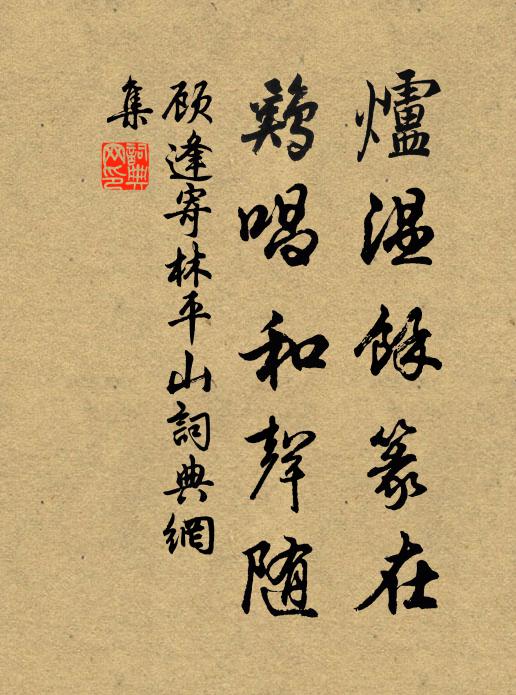 爐温餘篆在
鷄唱和聲随
顾逢寄林平山詞典網
集
詞典網印